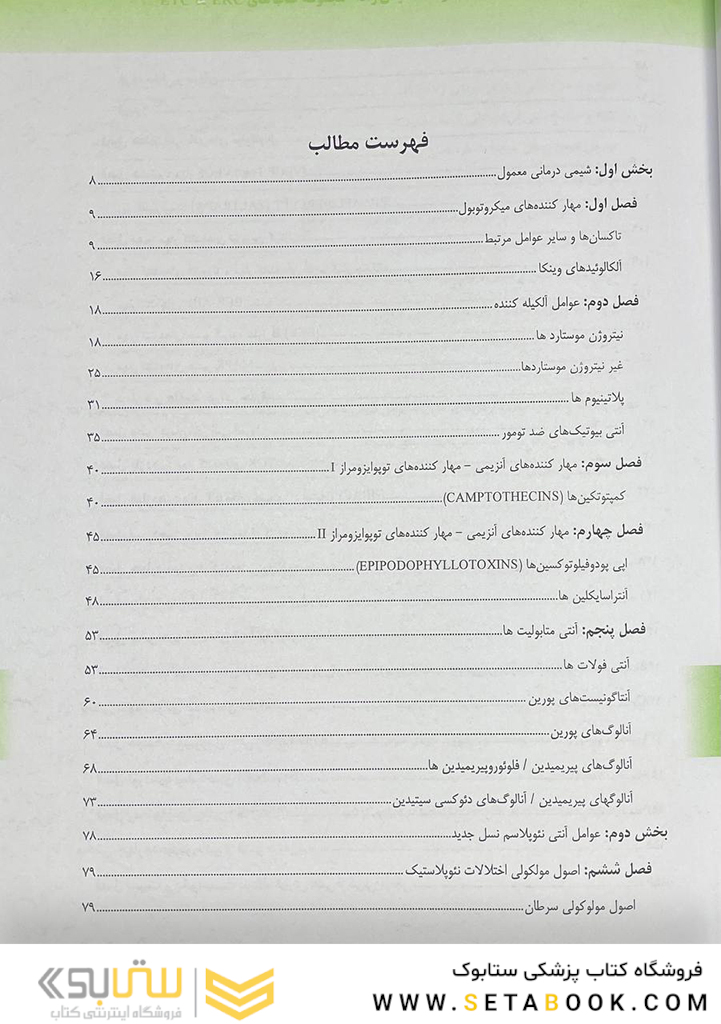 فهرست مطالب
بخش اول: شیمی درمانی معمول ۸
فصل اول: مهار کننده‌های میکروتوبول ۹
تاکسان‌ها و سایر عوامل مرتبط ۹
آلکالوئیدهای وینکا ۱۶
فصل دوم: عوامل آلکیله کننده ۱۸
نیتروژن موستارد ها ۱۸
غیر نیتروژن موستاردها ۲۵
پلاتینیوم ها ۳۱
آنتی بیوتیک‌های ضد تومور ۳۵
فصل سوم: مهار کننده‌های آنزیمی – مهار کننده‌های توپوایزومراز I ۴۰
کمپتوتکین‌ها (CAMPTOTHECINS) ۴۰
فصل چهارم: مهار کننده‌های آنزیمی – مهار کننده‌های توپوایزومراز II ۴۵
اپی پودوفیلوتوکسین‌ها (EPIPODOPHYLLOTOXINS) ۴۵
آنتراسایکلین ها ۴۸
فصل پنجم: آنتی متابولیت ها ۵۳
آنتی فولات ها ۵۳
آنتاگونیست‌های پورین ۶۰
آنالوگ‌های پورین ۶۴
آنالوگ‌های پیریمیدین / فلوئوروپیریمیدین ها ۶۸
آنالوگهای پیریمیدین / آنالوگ‌های دئوکسی سیتیدین ۷۳
بخش دوم: عوامل آنتی نئوپلاسم نسل جدید ۷۸
فصل ششم: اصول مولکولی اختلالات نئوپلاستیک ۷۹
اصول مولوکولی سرطان ۷۹
فروشگاه کتاب پزشکی ستابوک
WWW.SETABOOK.COM
ستابوک
فروشگاه اینترنتی کتاب